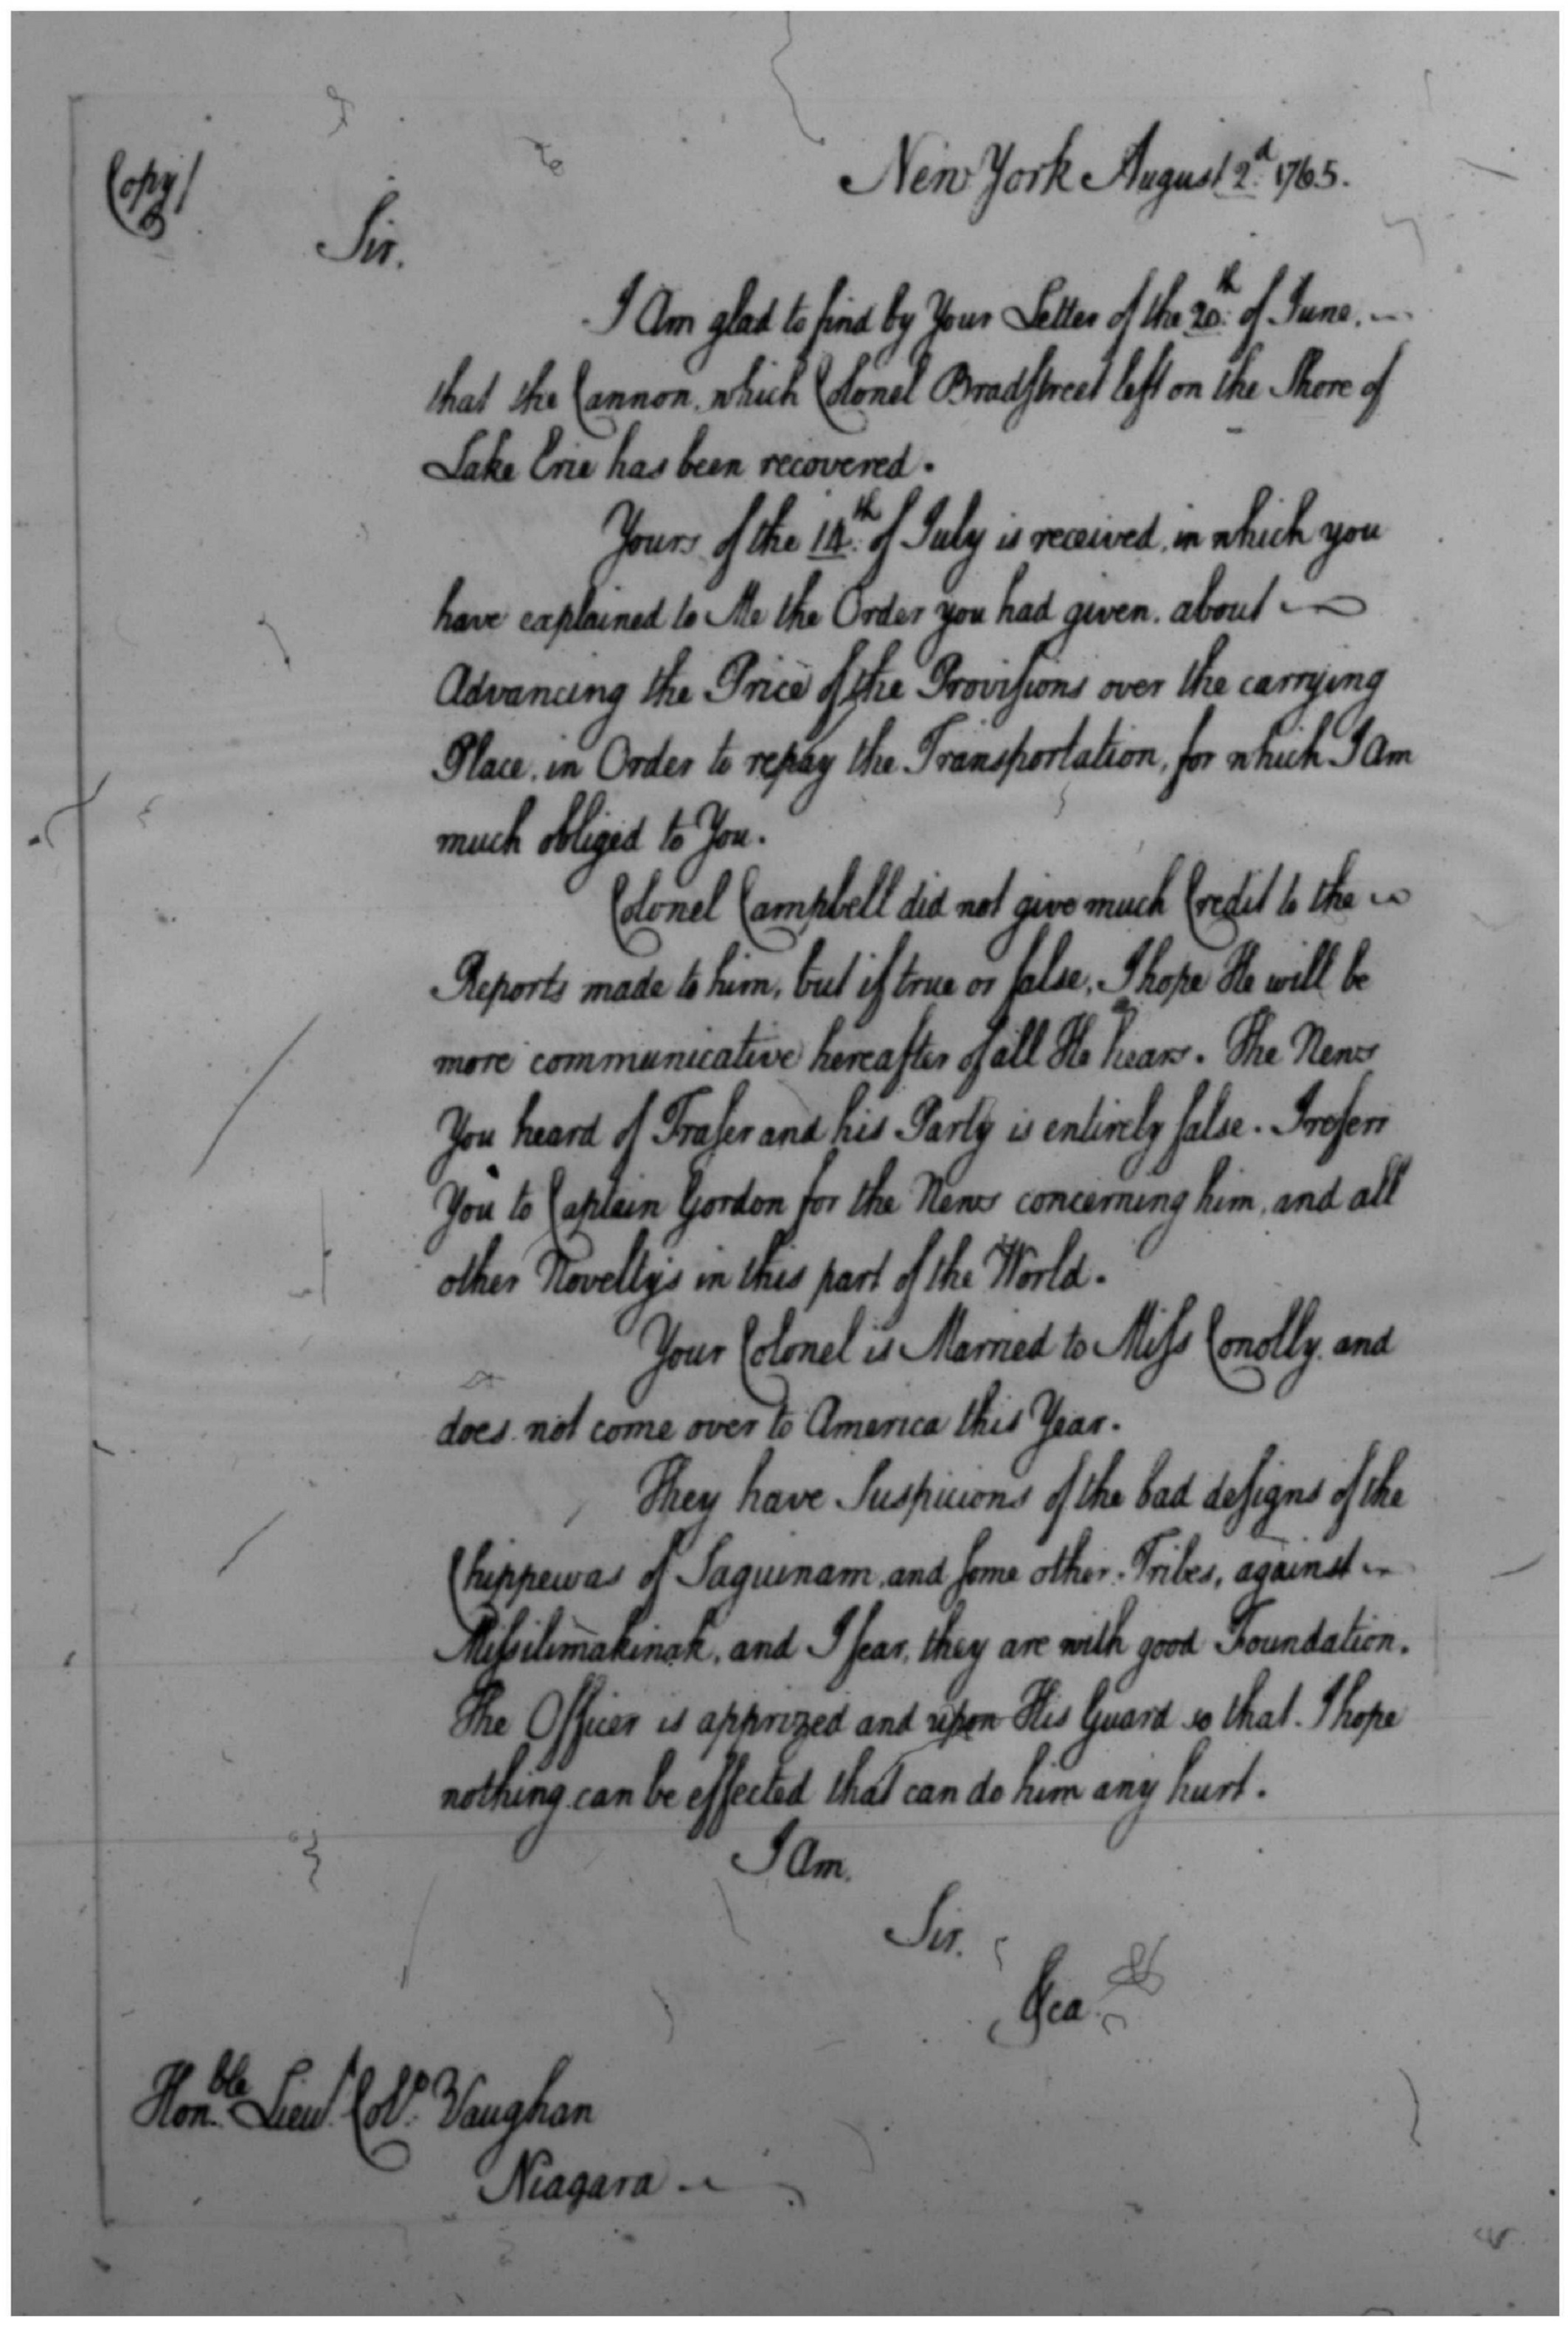 Copy/
New York August 2d. 1765.
Sir.
I Am glad to find by Your Letter of the 20th. of June,
that the Cannon, which Colonel Bradstreet left on the Shore of
Lake Erie has been recovered.
Yours of the 14th. of July is received, in which you
have explained to Me the Order you had given, about
Advancing the Price of the Provisions over the carrying
Place, in Order to repay the Transportation, for which I Am
much obliged to You.
Colonel Campbell did not give much Credit to the
Reports made to him, but if true or false, I hope He will be
more communicative hereafter of all He hears. The News
You heard of Fraser and his Party is entirely false. I referr
You to Captain Gordon for the News concerning him, and all
other Novelty's in this part of the World.
Your Colonel is Married to Miss Conolly, and
does not come over to America this Year.
They have Suspicions of the bad designs of the
Chippewas of Saguinam, and some other Tribes, against
Missilimakinak, and I fear, they are with good Foundation.
The Officer is apprized and upon His Guard so that I hope
nothing can be effected that can do him any hurt.
I Am,
Sir,
&ca.
Honble. Lieut. Colo. Vaughan
Niagara